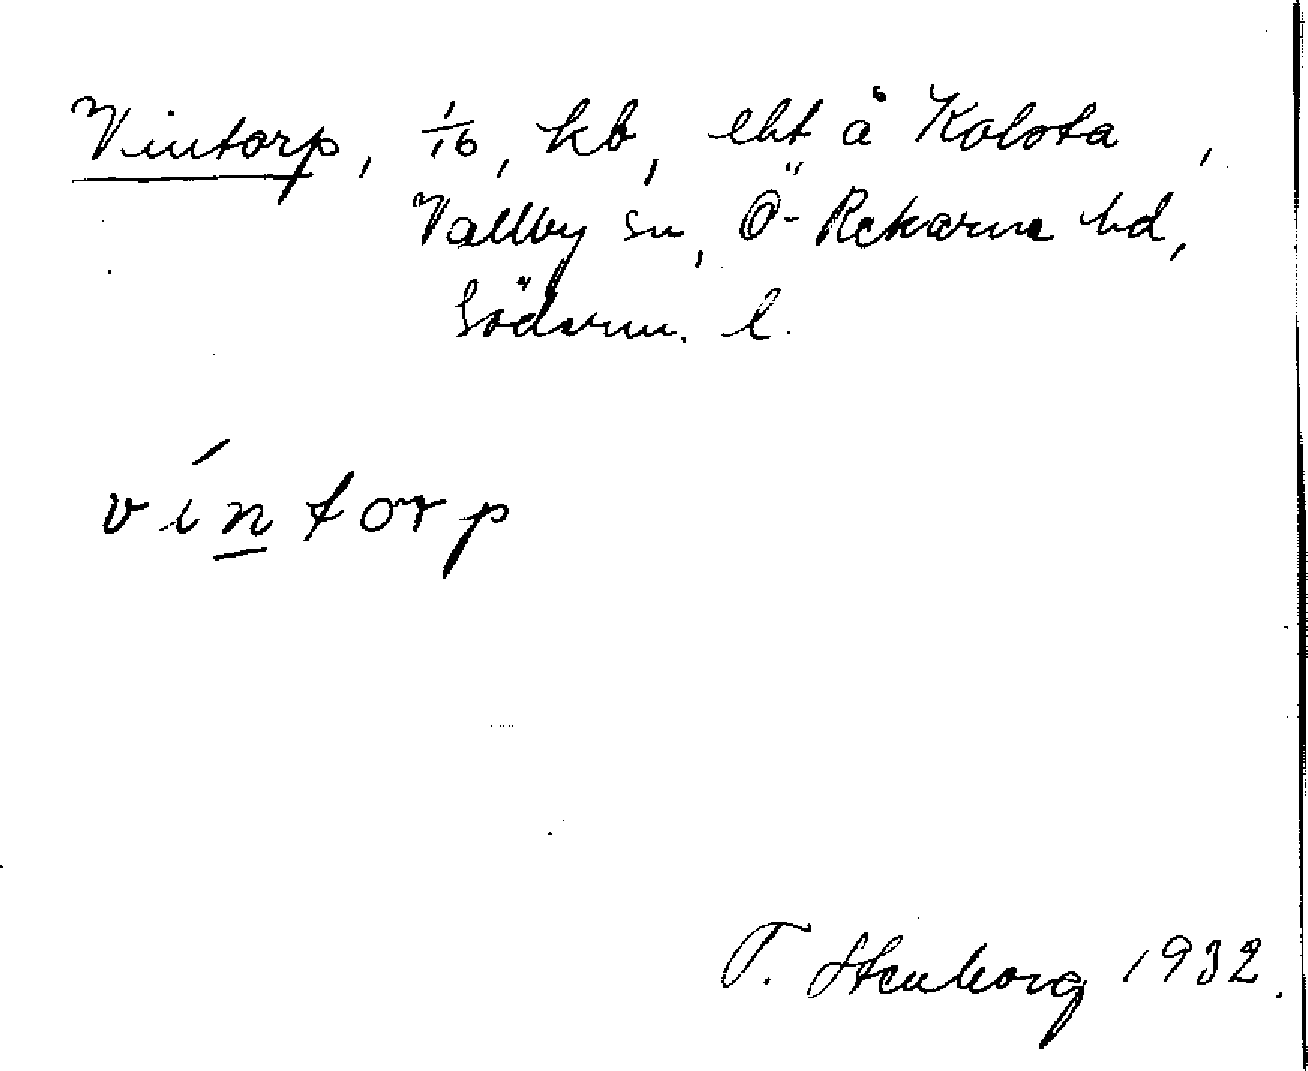 Vintorp, 1/16, kb, eht å Kolsta,
Vallby sn, Ö-Rekarne hd,
Söderm. l.
víntorp
T. Stenborg 1932.